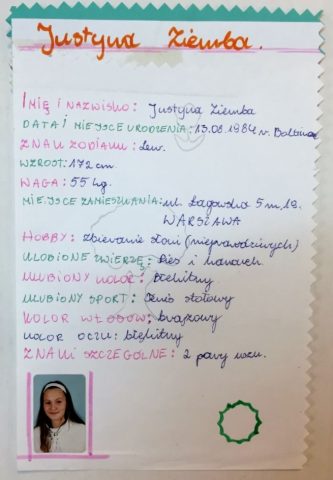 Justyna Ziemba.
IMIĘ I NAZWISKO: Justyna Ziemba
DATA I MIEJSCE URODZENIA: 13.08.1984 r.
ZNAK ZODIAKU: Lew.
WZROST: 172 cm
WAGA: 55 kg.
MIEJSCE ZAMIESZKANIA: ul. Łagowska 5 m,
WARSZAWA
HOBBY: zbieranie słoni (nieprawdziwych)
ULUBIONE ZWIERZĘ: Pies i kanarek.
ULUBIONY KOLOR: błękitny.
ULUBIONY SPORT: Tenis stołowy
KOLOR WŁOSÓW: brązowy
KOLOR OCZU: błękitny
ZNAKI SZCZEGÓLNE: 2 pary oczu.